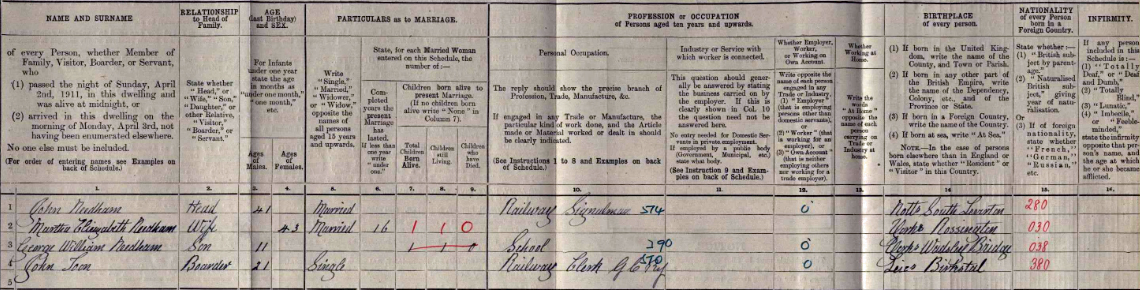 NAME AND SURNAME
RELATIONSHIP
to Head of
Family.
AGE
(last Birthday)
and SEX.
PARTICULARS as to MARRIAGE.
PROFESSION or OCCUPATION
of Persons aged ten years and upwards.
BIRTHPLACE
of every person.
NATIONALITY
of every Person
born in a
Foreign Country.
INFIRMITY.
of every Person, whether Member of
Family, Visitor, Boarder, or Servant,
who
(1) passed the night of Sunday, April
2nd, 1911, in this dwelling and
was alive at midnight, or
(2) arrived in this dwelling on the
morning of Monday, April 3rd, not
having been enumerated elsewhere.
No one else must be included.
(For order of entering names see Examples on
back of Schedule.)
State whether
"Head," or
"Wife," "Son,"
"Daughter," or
other Relative,
"Visitor,"
"Boarder," or
"Servant."
For Infants
under one year
state the age
in months as
"under one
month," "one
month,"
etc.
Ages
of
Males.
Ages
of
Females.
Write
"Single,"
"Married,"
"Widower,"
or "Widow,"
opposite the
names of
all persons
aged 15 years
and upwards.
State, for each Married Woman
entered on this Schedule, the
number of:—
Completed
years the
present
Marriage
has
lasted.
If less than
one year
write
"under
one."
Children born alive to
present Marriage.
(If no children born
alive write "None" in
Column 7).
Total
Children
Born
Alive.
Children
still
Living.
Children
who
have
Died.
Personal Occupation.
The reply should show the precise branch of
Profession, Trade, Manufacture, &c.
If engaged in any Trade or Manufacture, the
particular kind of work done, and the Article
made or Material worked or dealt in should
be clearly indicated.
(See Instructions 1 to 8 and Examples on back
of Schedule.)
Industry or Service with
which worker is connected.
This question should gener-
ally be answered by stating
the business carried on by
the employer. If this is
clearly shown in Col. 10
the question need not be
answered here.
No entry needed for Domestic Ser-
vants in private employment.
If employed by a public body
(Government, Municipal, etc.)
state what body.
(See Instruction 9 and Exam-
ples on back of Schedule.)
Whether Employer,
Worker,
or Working on
Own Account.
Write opposite the
name of each person
engaged in any
Trade or Industry,
(1) "Employer"
(that is employing
persons other than
domestic servants),
or
(2) "Worker" (that
is working for an
employer), or
(3) "Own Account"
(that is neither
employing others
nor working for a
trade employer).
Whether
Working at
Home.
Write the
words
"At Home"
opposite the
name of each
person
carrying on
Trade or
Industry at
home.
(1) If born in the United King-
dom, write the name of the
County, and Town or Parish.
(2) If born in any other part of
the British Empire, write
the name of the Dependency,
Colony, etc., and of the
Province or State.
(3) If born in a Foreign Country,
write the name of the Country.
(4) If born at sea, write "At Sea."
NOTE.—In the case of persons
born elsewhere than in England or
Wales, state whether "Resident" or
"Visitor" in this Country.
State whether:—
(1) "British
subject by
parent-
age."
(2) "Naturalised
British sub-
ject," giving
year of natu-
ralisation.
Or
(3) If of foreign
nationality,
state whether
"French,"
"German,"
"Russian,"
etc.
If any person
included in this
Schedule is:—
(1) "Totally
Deaf," or "Deaf
and Dumb,"
(2) "Totally
Blind,"
(3) "Lunatic,"
(4) "Imbecile,"
or "Feeble-
minded,"
state the infirmity
opposite that per-
son's name, and
the age at which
he or she became
afflicted.
1. 2. 3. 4. 5. 6. 7. 8. 9. 10. 11. 12. 13. 14. 15. 16.
1 John Needham Head 41 Married Railway Signalman 574 0 Notts South Leverton 280
2 Martha Elizabeth Needham Wife 43 Married 16 1 1 0 Yorks Rossington 030
3 George William Needham Son 11 1 1 0 School 390 0 Yorks Wadsley Bridge 038
4 John Toon Boarder 21 Single Railway Clerk 570 0 Leics Birstal 380
5